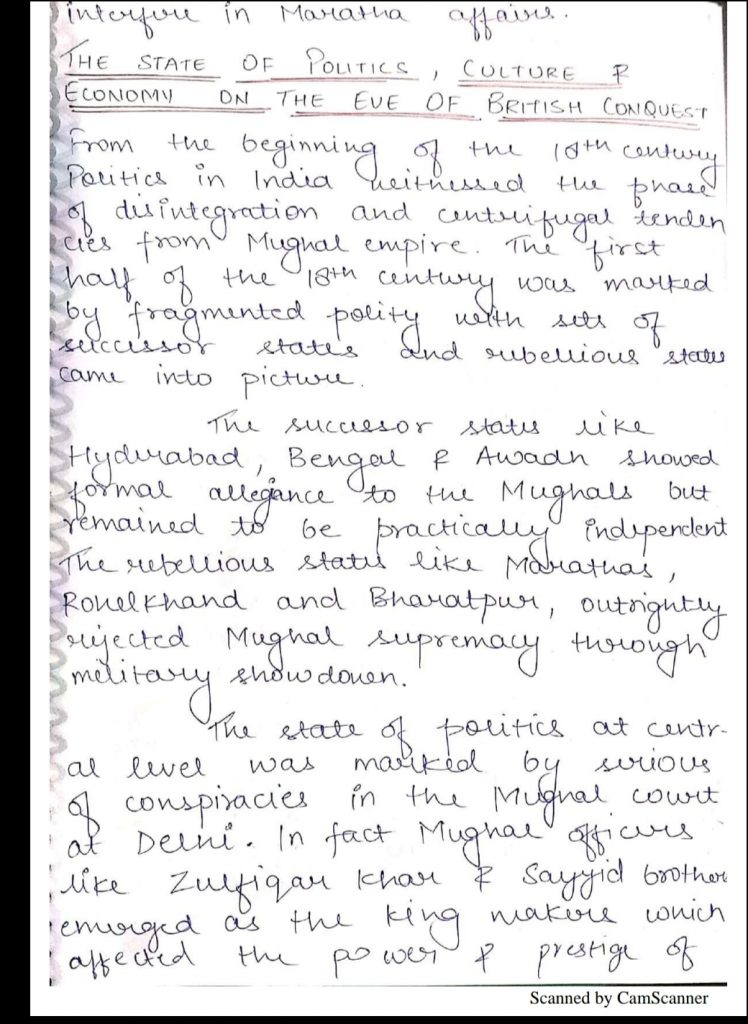 interfere in Maratha affairs.
THE STATE OF POLITICS, CULTURE &
ECONOMY ON THE EVE OF BRITISH CONQUEST
From the beginning of the 18th century
Politics in India witnessed the phase
of disintegration and centrifugal tenden
cies from Mughal empire. The first
half of the 18th century was marked
by fragmented polity with sets of
successor states and rebellious states
came into picture.
The successor states like
Hyderabad, Bengal & Awadh showed
formal allegance to the Mughals but
remained to be practically independent
The rebellious states like Marathas,
Rohelkhand and Bharatpur, outrightly
rejected Mughal supremacy through
military showdown.
The state of politics at centr-
al level was marked by serious
of conspiracies in the Mughal court
at Delhi. In fact Mughal officers
like Zulfiqar Khan & Sayyid brother
emerged as the king makers which
affected the power & prestige of
Scanned by CamScanner